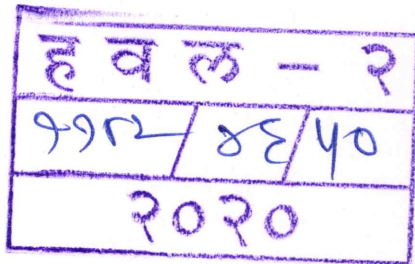 हवल - २
११८२/४६/५०
२०२०